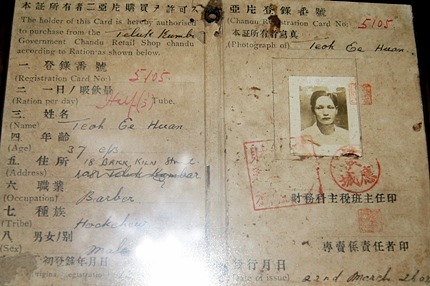 本証所有者ニ亜片購買ヲ許可ス
The holder of this Card is hereby authorised
to purchase from the Teluk Kumbar
Government Chandu Retail Shop chandu
according to Ration as shown below.
一 登錄番號
(Registration Card No:) 5105.
二 一日ノ吸飲量
(Ration per day) Half(½) Tube.
三 姓名
(Name) Teoh Ee Huan
四 年齡
(Age) 37 yrs
五 住所 18 BRICK KILN Street
(Address)
六 職業
(Occupation) Barber
七 種族
(Tribe) Hockchew
八 男女ノ別
(Sex) Male
初登錄年月日
亞片登錄番號
(Chandu Registration No.) 5105
本証所有者寫眞
(Photograph of) Teoh Ee Huan
財務科主税班主任印
專賣係責任者印
發行月日
(Date of issue) 22nd March